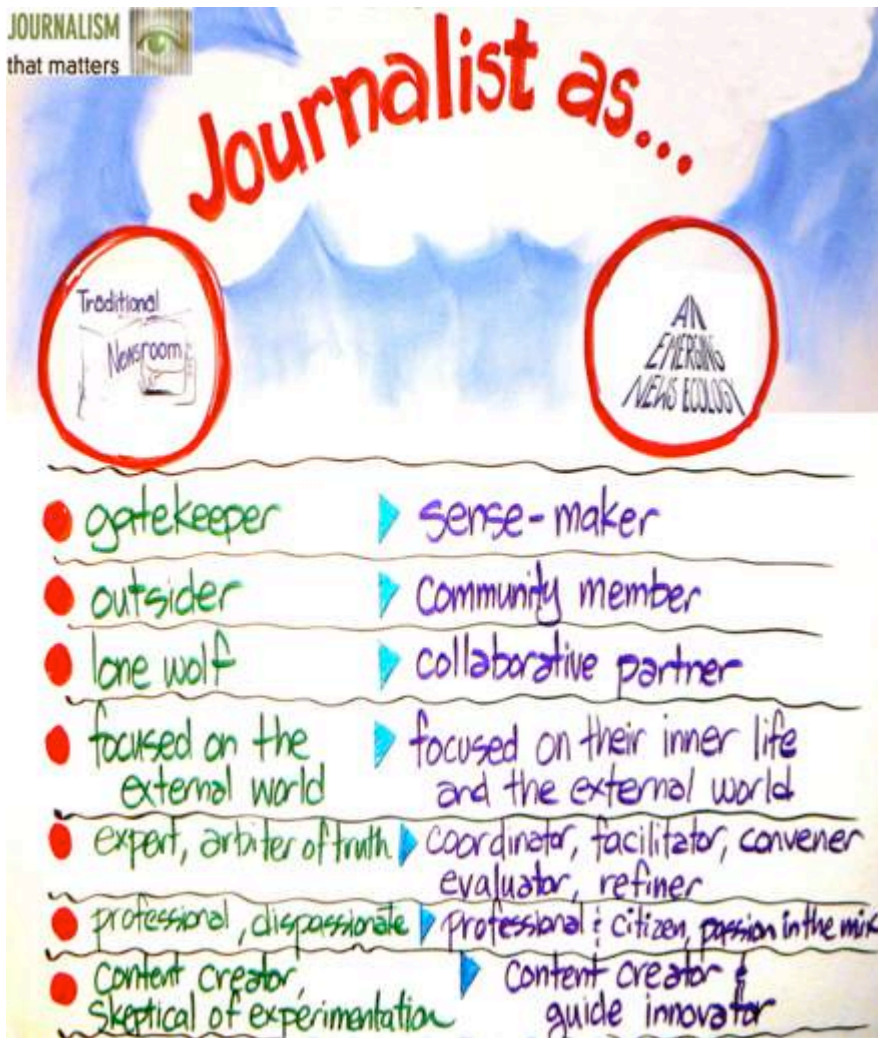 JOURNALISM
that matters
Journalist as...
Traditional
Newsroom
AN
EMERGING
NEWS ECOLOGY
gatekeeper
sense-maker
outsider
community member
lone wolf
collaborative partner
focused on the
external world
focused on their inner life
and the external world
expert, arbiter of truth
coordinator, facilitator, convener
evaluator, refiner
professional, dispassionate
professional & citizen, passion in the mix
content creator,
skeptical of experimentation
content creator &
guide innovator